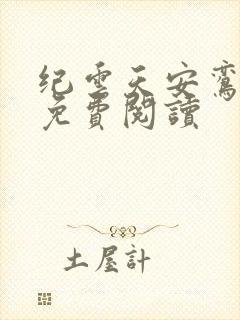 纪云天安鸾
免費閱讀
土屋計